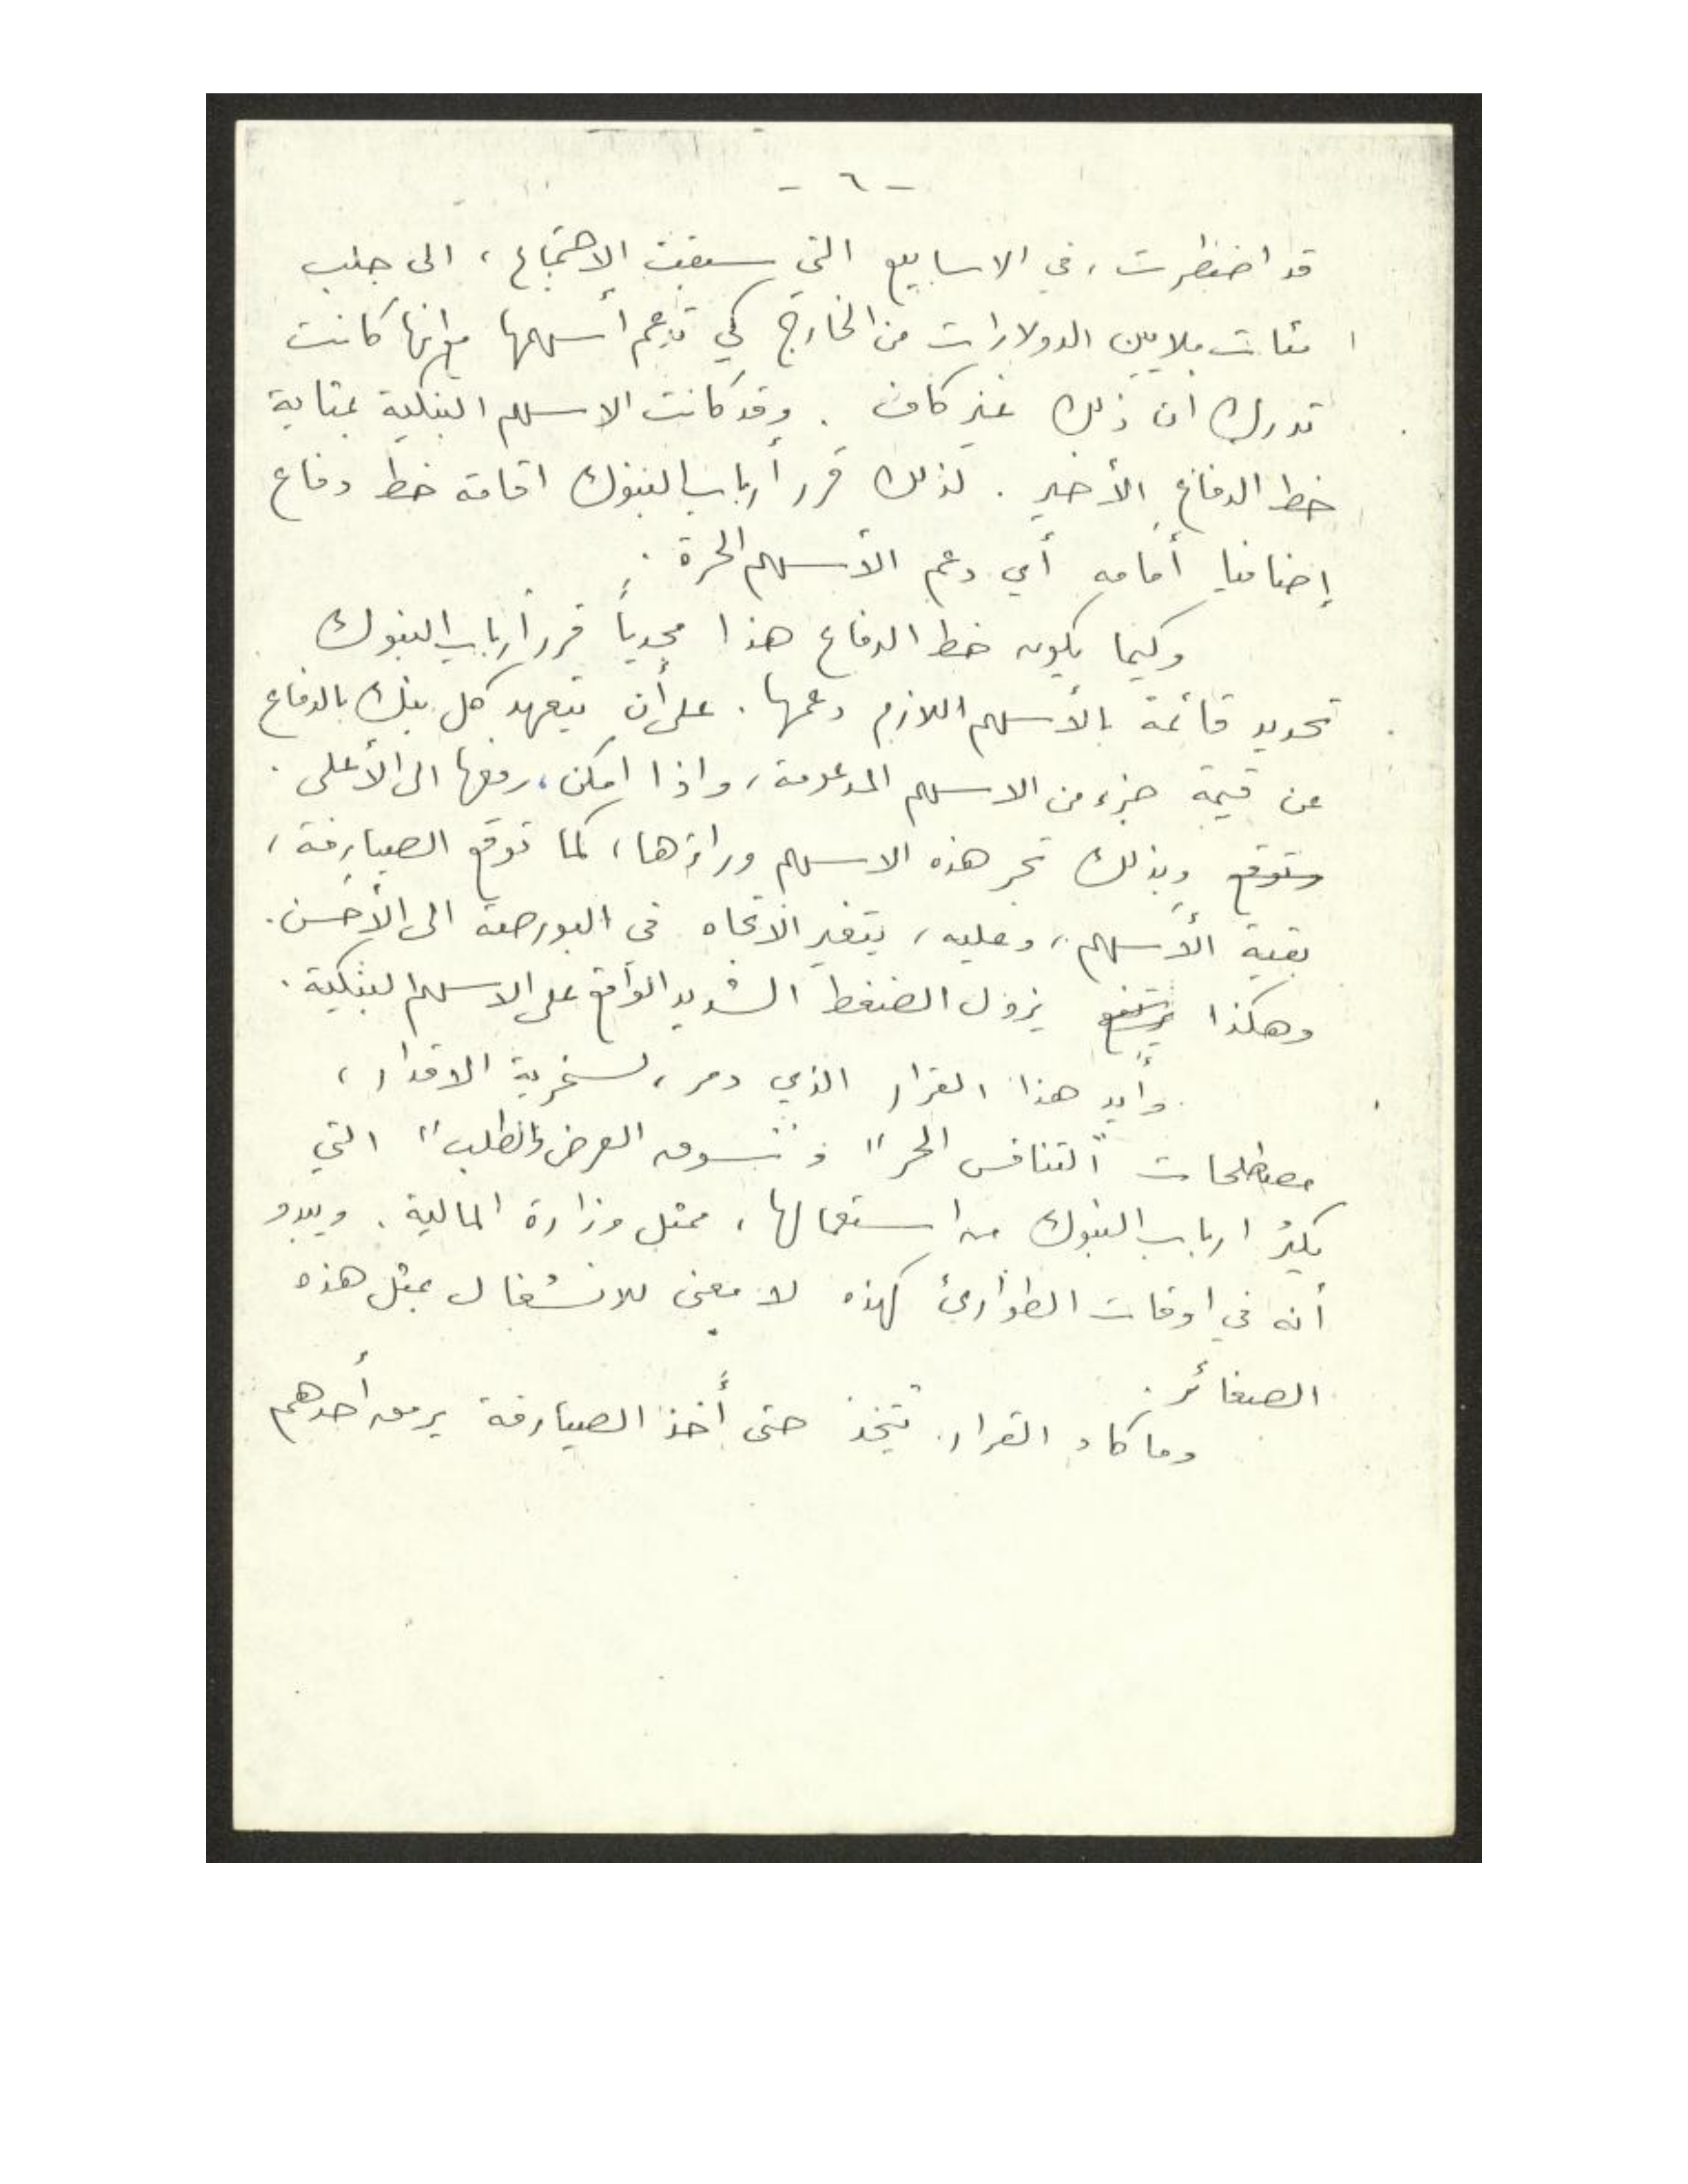 - ٦ -
قد اضطرت، في الاسابيع التي سبقت الإجتماع، الى جلب
مئات ملايين الدولارات من الخارج كي تدعم أسهمها مع انها كانت
تدرك ان ذلك غير كاف. وقد كانت الاسهم البنكية بمثابة
خط الدفاع الأخير. لذلك قرر أرباب البنوك اقامة خط دفاع
إضافيا أمامه أي دعم الأسهم الحرة.
وكيما يكون خط الدفاع هذا مجدياً قرر أرباب البنوك
تحديد قائمة بالأسهم اللازم دعمها. على أن يتعهد كل بنك بالدفاع
عن قيمة جزء من الاسهم المدعومة، واذا امكن، رفعها الى الأعلى.
وتوقع وبذلك تجر هذه الاسهم وراءها، كما توقع الصيارفة،
بقية الأسهم، وعليه، يتغير الاتجاه في البورصة الى الأحسن.
وهكذا يزول الضغط الشديد الواقع على الاسهم البنكية.
وأيد هذا القرار الذي دمر، لسخرية الاقدار،
مصطلحات "التنافس الحر" و"سوق العرض والطلب" التي
يكثر ارباب البنوك من استعمالها، ممثل وزارة المالية. ويبدو
أنه في اوقات الطوارئ كهذه لا معنى للانشغال بمثل هذه
الصغائر.
وما كاد القرار يتخذ حتى أخذ الصيارفة يرمق أحدهم